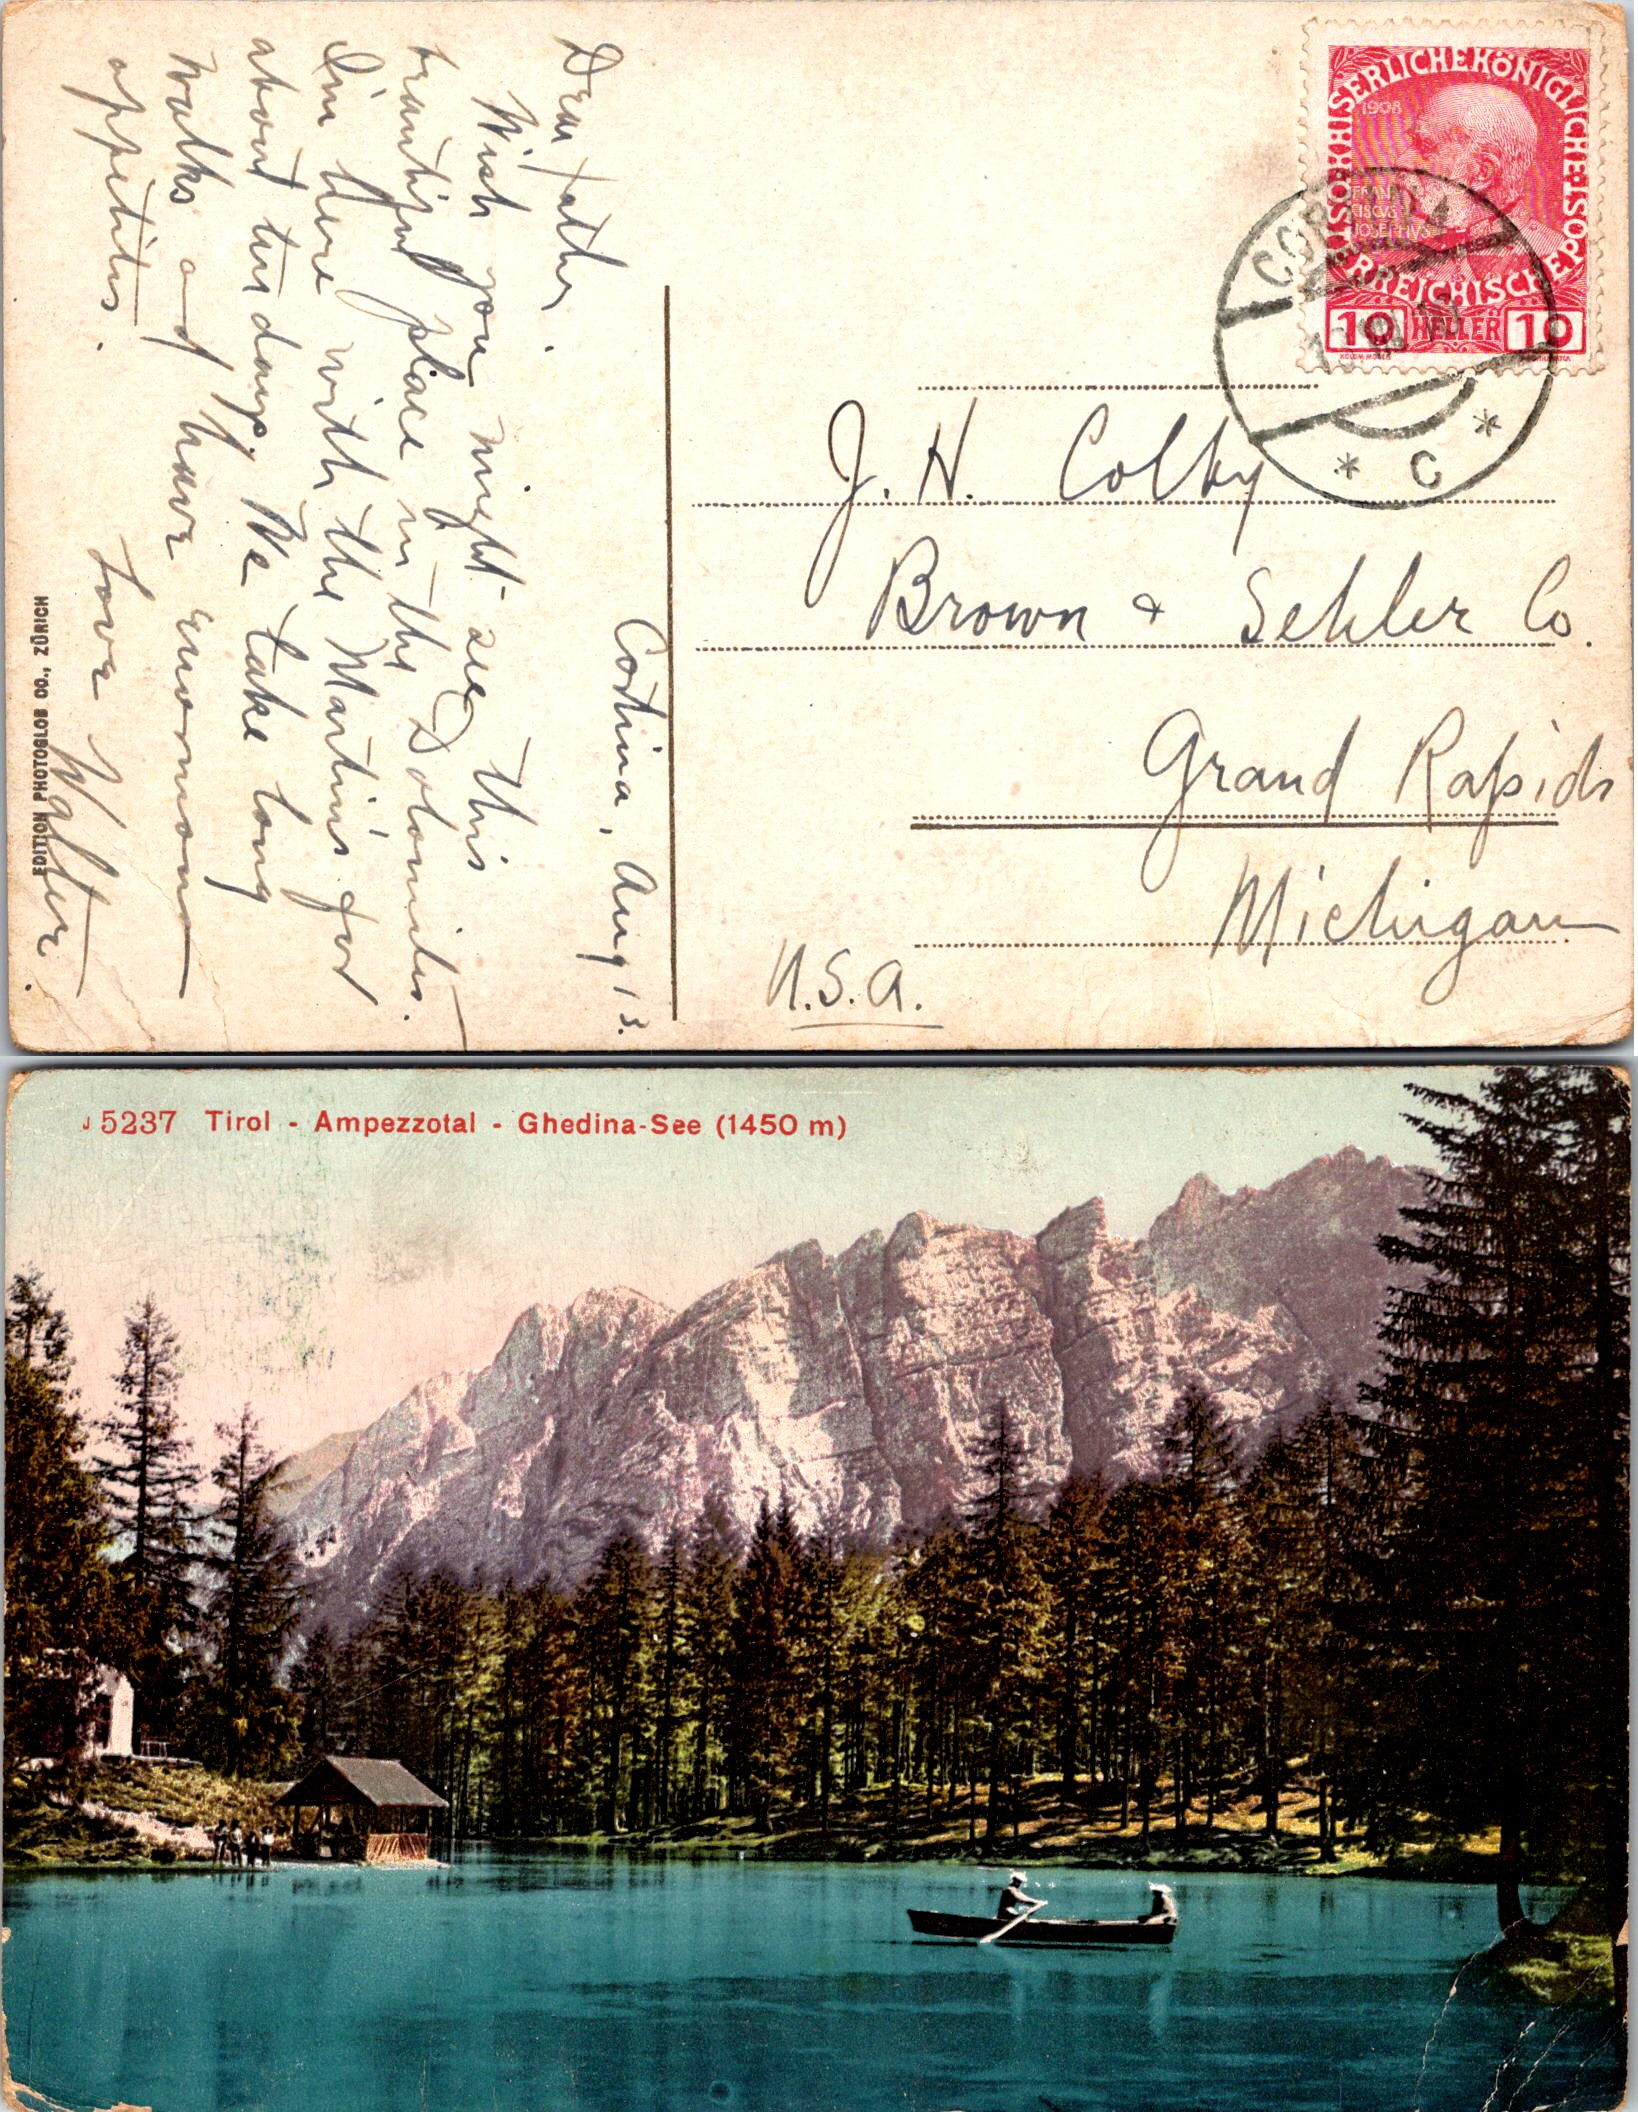 Cortina, Aug 13.
Dear Father.
Wish you might see this
beautiful place in the Dolomites.
I'm here with the Martins for
about ten days. We take long
walks and have enormous
appetites.
Love Walter.
EDITION PHOTOGLOB CO., ZÜRICH
KAISERLICHE KÖNIGLICHE ÖSTERREICHISCHE POST
1908
FRAN
CISCVS
JOSEPHVS
10 HELLER 10
KOLOM. MOSER
CORTINA
* C *
J. H. Colby
Brown & Sehler Co.
Grand Rapids
Michigan
U.S.A.
J 5237 Tirol - Ampezzotal - Ghedina-See (1450 m)